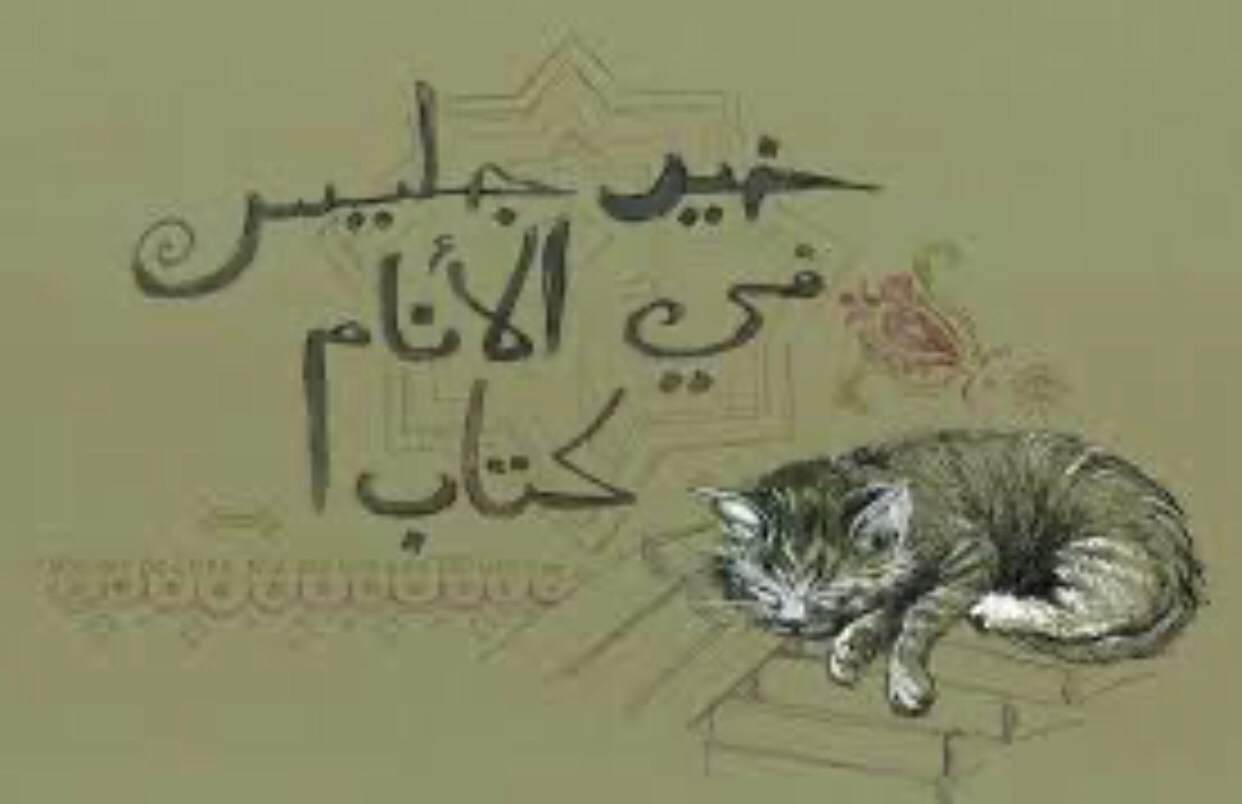 خير جليس
في الأنام
كتاب